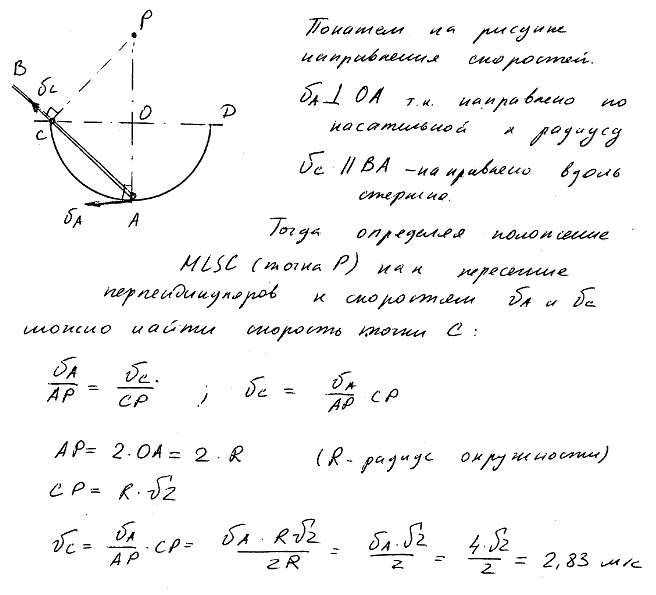 P
Покажем на рисунке
направления скоростей.
B
υc
υA ⊥ OA т.к. направлено по
касательной к радиусу
C
O
D
υc ∥ BA – направлено вдоль
стержня.
υA
A
Тогда определяя положение
MЦSC (точка P) как пересечение
перпендикуляров к скоростям υA и υc
можно найти скорость точки C:
υA/AP = υc/CP ; υc = υA/AP CP
AP = 2·OA = 2·R (R - радиус окружности)
CP = R·√2
υc = υA/AP · CP = υA·R√2/2R = υA·√2/2 = 4·√2/2 = 2,83 м/с